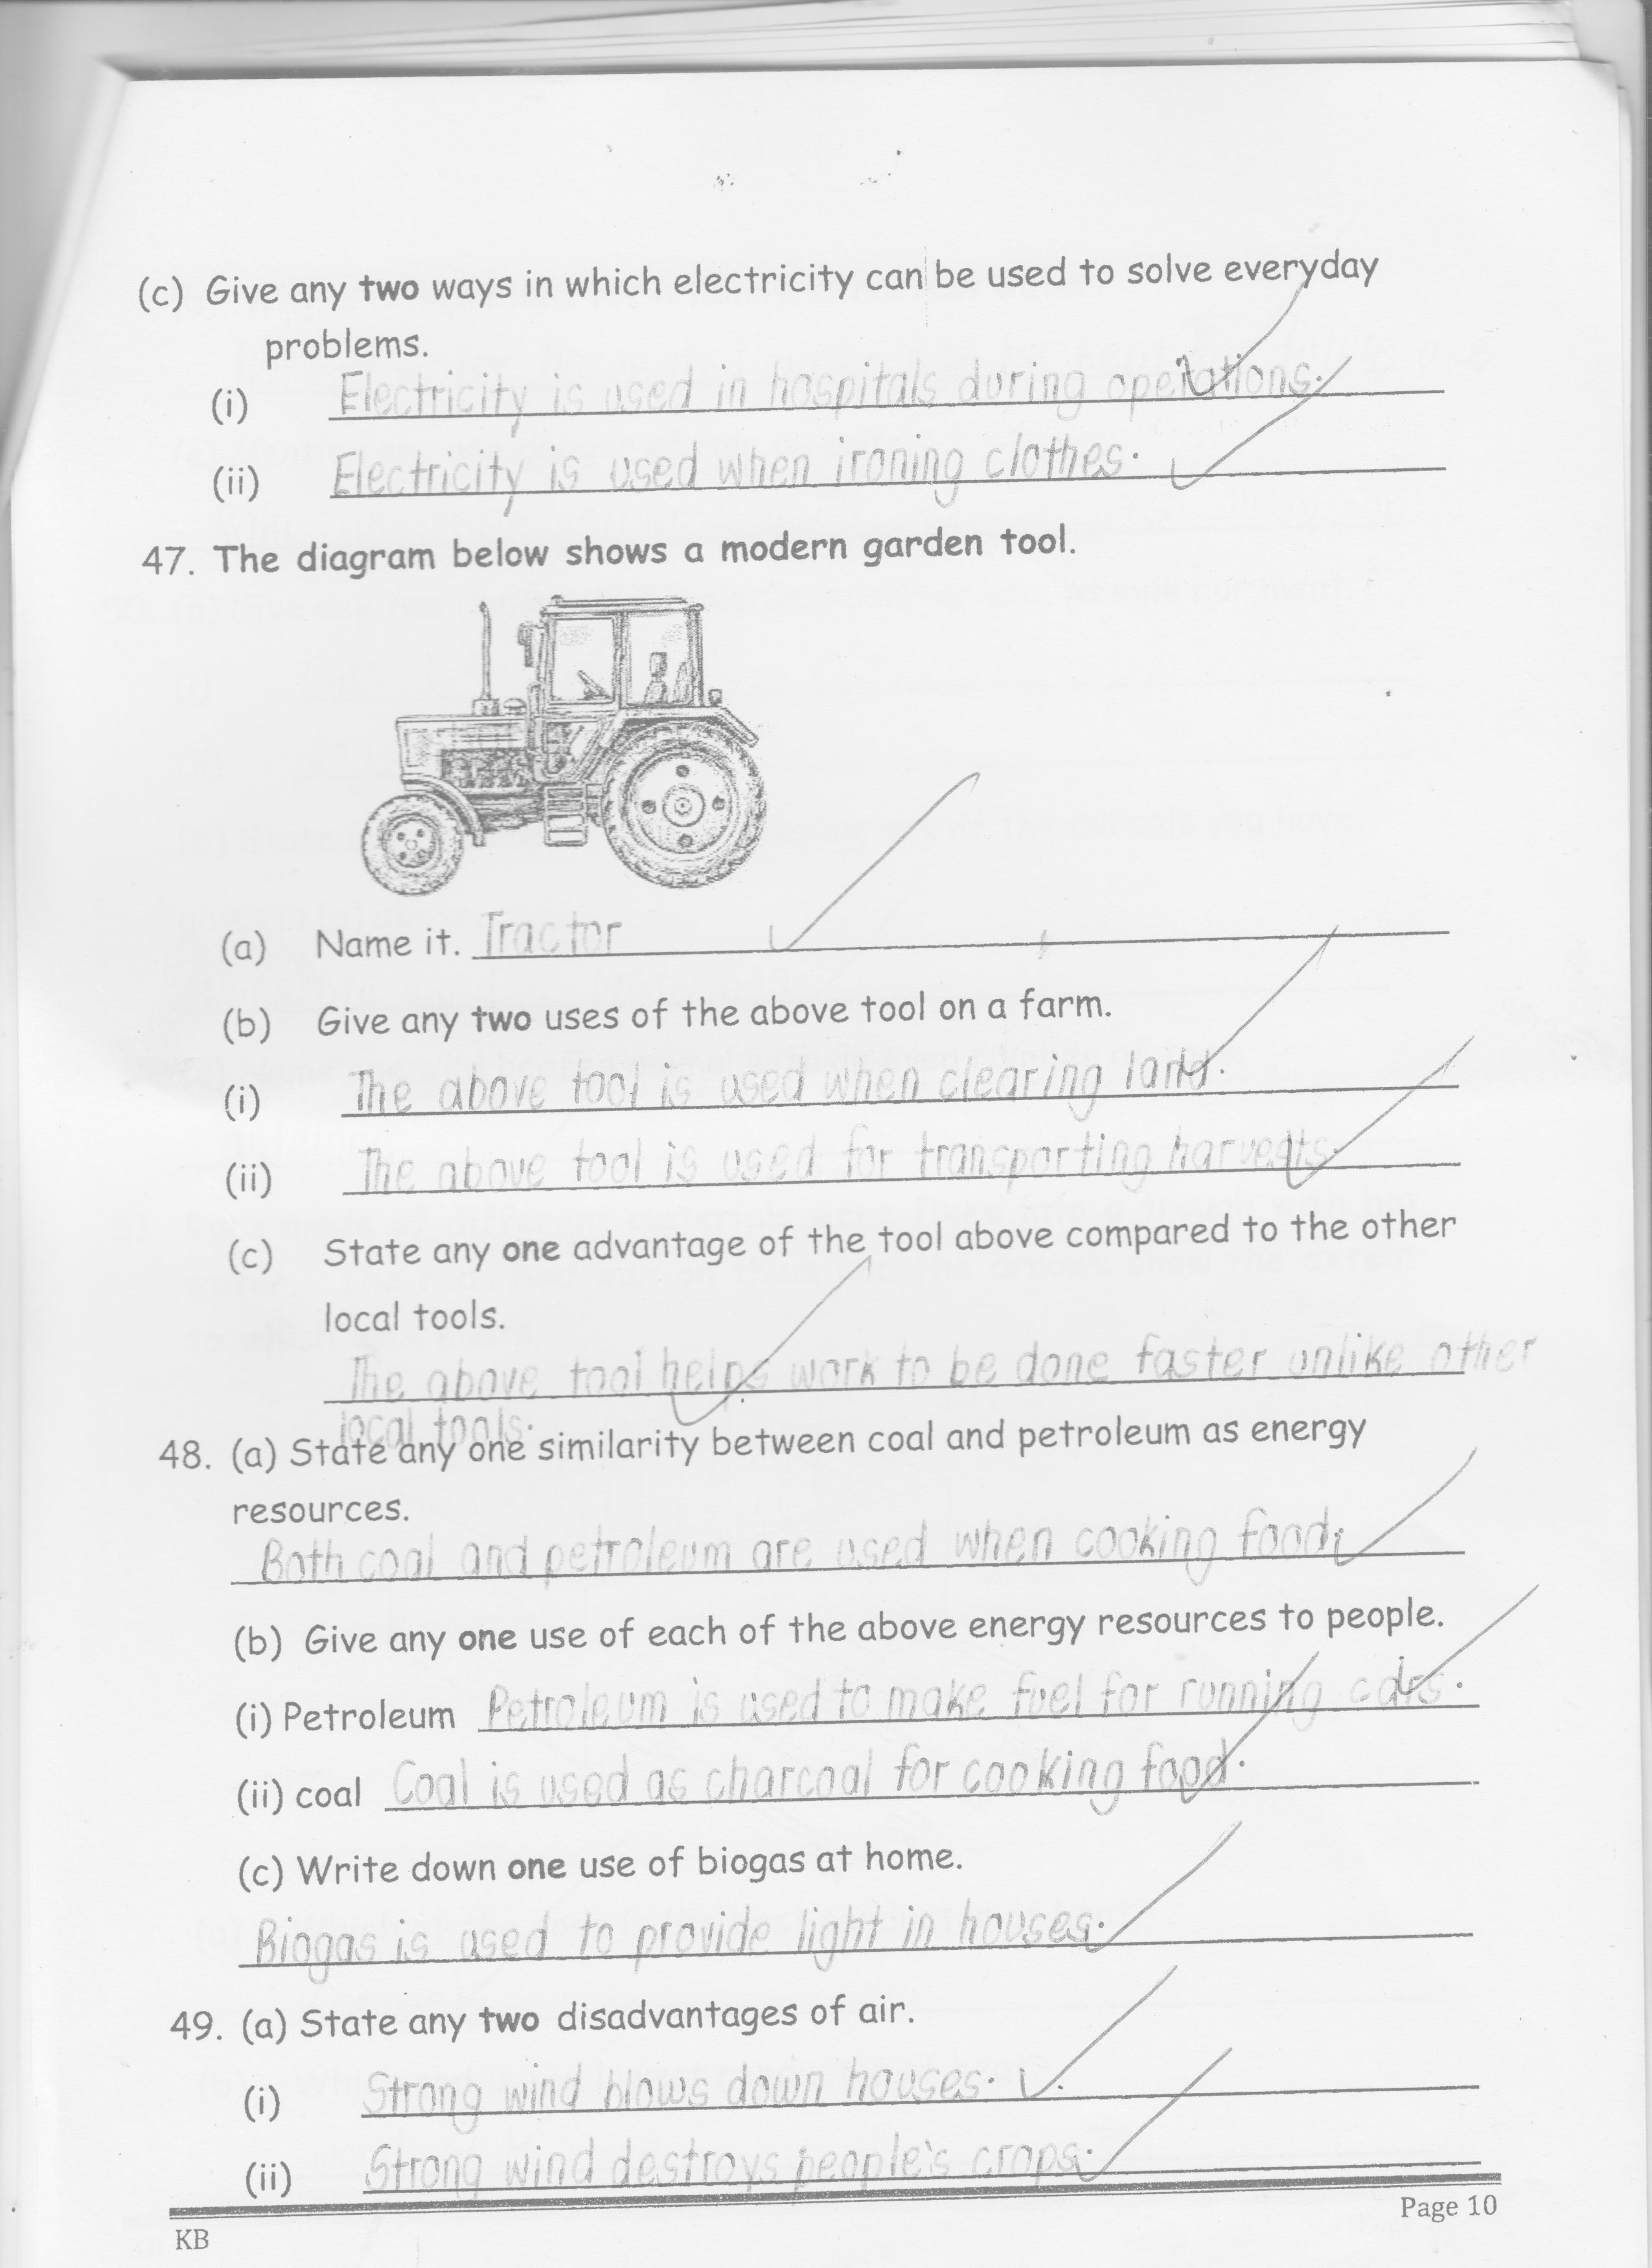 (c) Give any two ways in which electricity can be used to solve everyday
problems.
(i) Electricity is used in hospitals during operations.
(ii) Electricity is used when ironing clothes.
47. The diagram below shows a modern garden tool.
(a) Name it. Tractor
(b) Give any two uses of the above tool on a farm.
(i) The above tool is used when clearing land.
(ii) The above tool is used for transporting harvests.
(c) State any one advantage of the tool above compared to the other
local tools.
The above tool helps work to be done faster unlike other
local tools.
48. (a) State any one similarity between coal and petroleum as energy
resources.
Both coal and petroleum are used when cooking food.
(b) Give any one use of each of the above energy resources to people.
(i) Petroleum Petroleum is used to make fuel for running cars.
(ii) coal Coal is used as charcoal for cooking food.
(c) Write down one use of biogas at home.
Biogas is used to provide light in houses.
49. (a) State any two disadvantages of air.
(i) Strong wind blows down houses.
(ii) Strong wind destroys people's crops.
KB Page 10